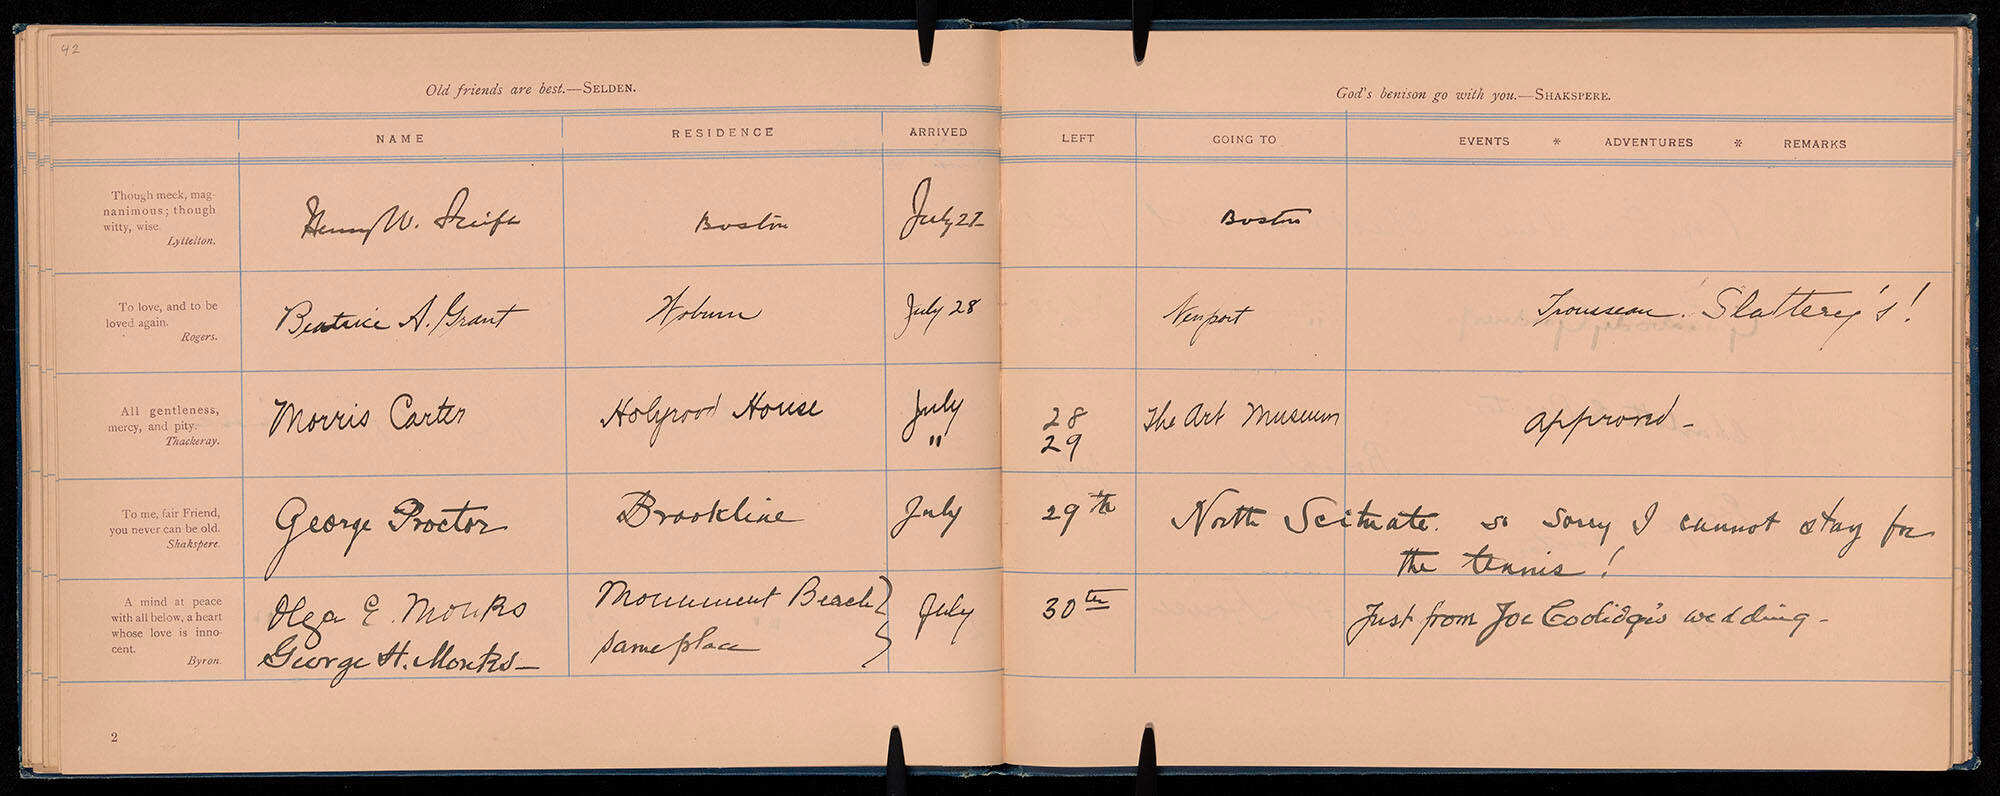 42
Old friends are best.—SELDEN.
God's benison go with you.—SHAKSPERE.
NAME RESIDENCE ARRIVED LEFT GOING TO EVENTS * ADVENTURES * REMARKS
Though meek, mag-
nanimous; though
witty, wise.
Lyttelton.
Henry W. Swift Boston July 27- Boston
To love, and to be
loved again.
Rogers.
Beatrice A. Grant Woburn July 28 Newport Trousseau. Slattery's!
All gentleness,
mercy, and pity.
Thackeray.
Morris Carter Holyrood House July 28 The Art Museum approved-
" 29
To me, fair Friend,
you never can be old.
Shakspere.
George Proctor Brookline July 29th North Scituate. so sorry I cannot stay for
the tennis!
A mind at peace
with all below, a heart
whose love is inno-
cent.
Byron.
Olga E. Monks Monument Beach July 30th Just from Joe Coolidge's wedding-
George H. Monks- same place
2